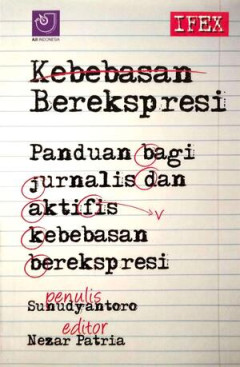 AJI INDONESIA
IFEX
Kebebasan
Berekspresi
Panduan bagi
jurnalis dan
aktifis
v
kebebasan
berekspresi
penulis
Sunudyantoro
editor
Nezar Patria